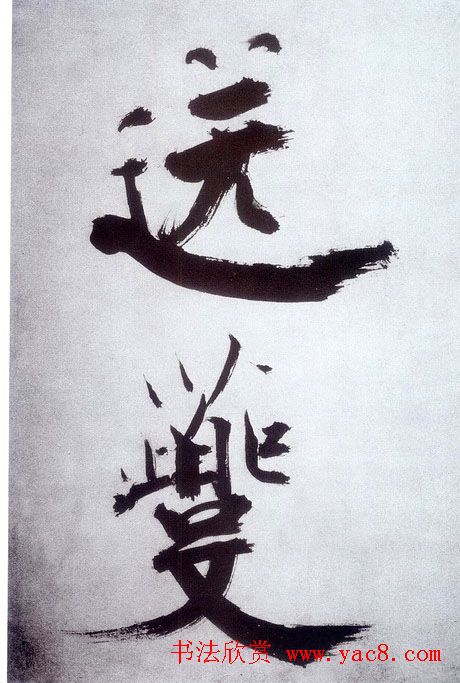 送
夔
书法欣赏 www.yac8.com